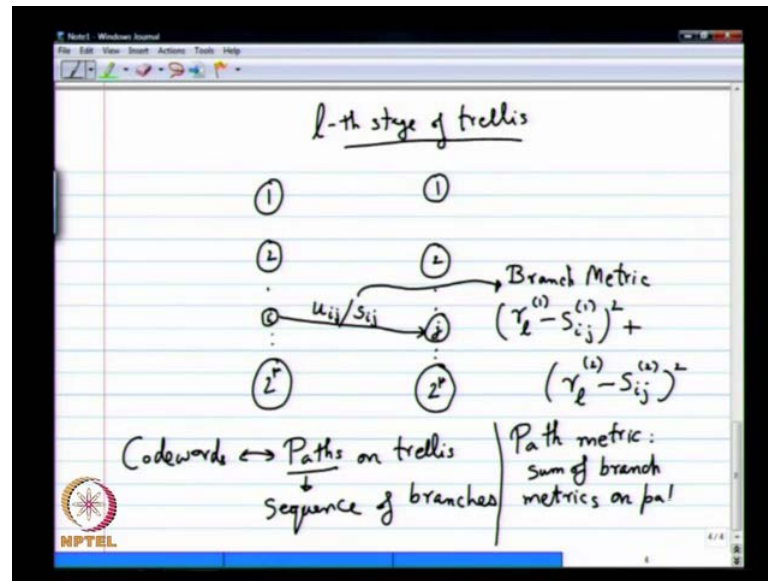 Note1 - Windows Journal
File Edit View Insert Actions Tools Help
l-th stage of trellis
1 1
2 2
i u_{ij}/s_{ij} j
2^r 2^r
Branch Metric
(r_l^{(1)} - s_{ij}^{(1)})^2 +
(r_l^{(2)} - s_{ij}^{(2)})^2
Codewords ↔ Paths on trellis
↓
sequence of branches
Path metric:
sum of branch
metrics on pa
NPTEL
4/4
4